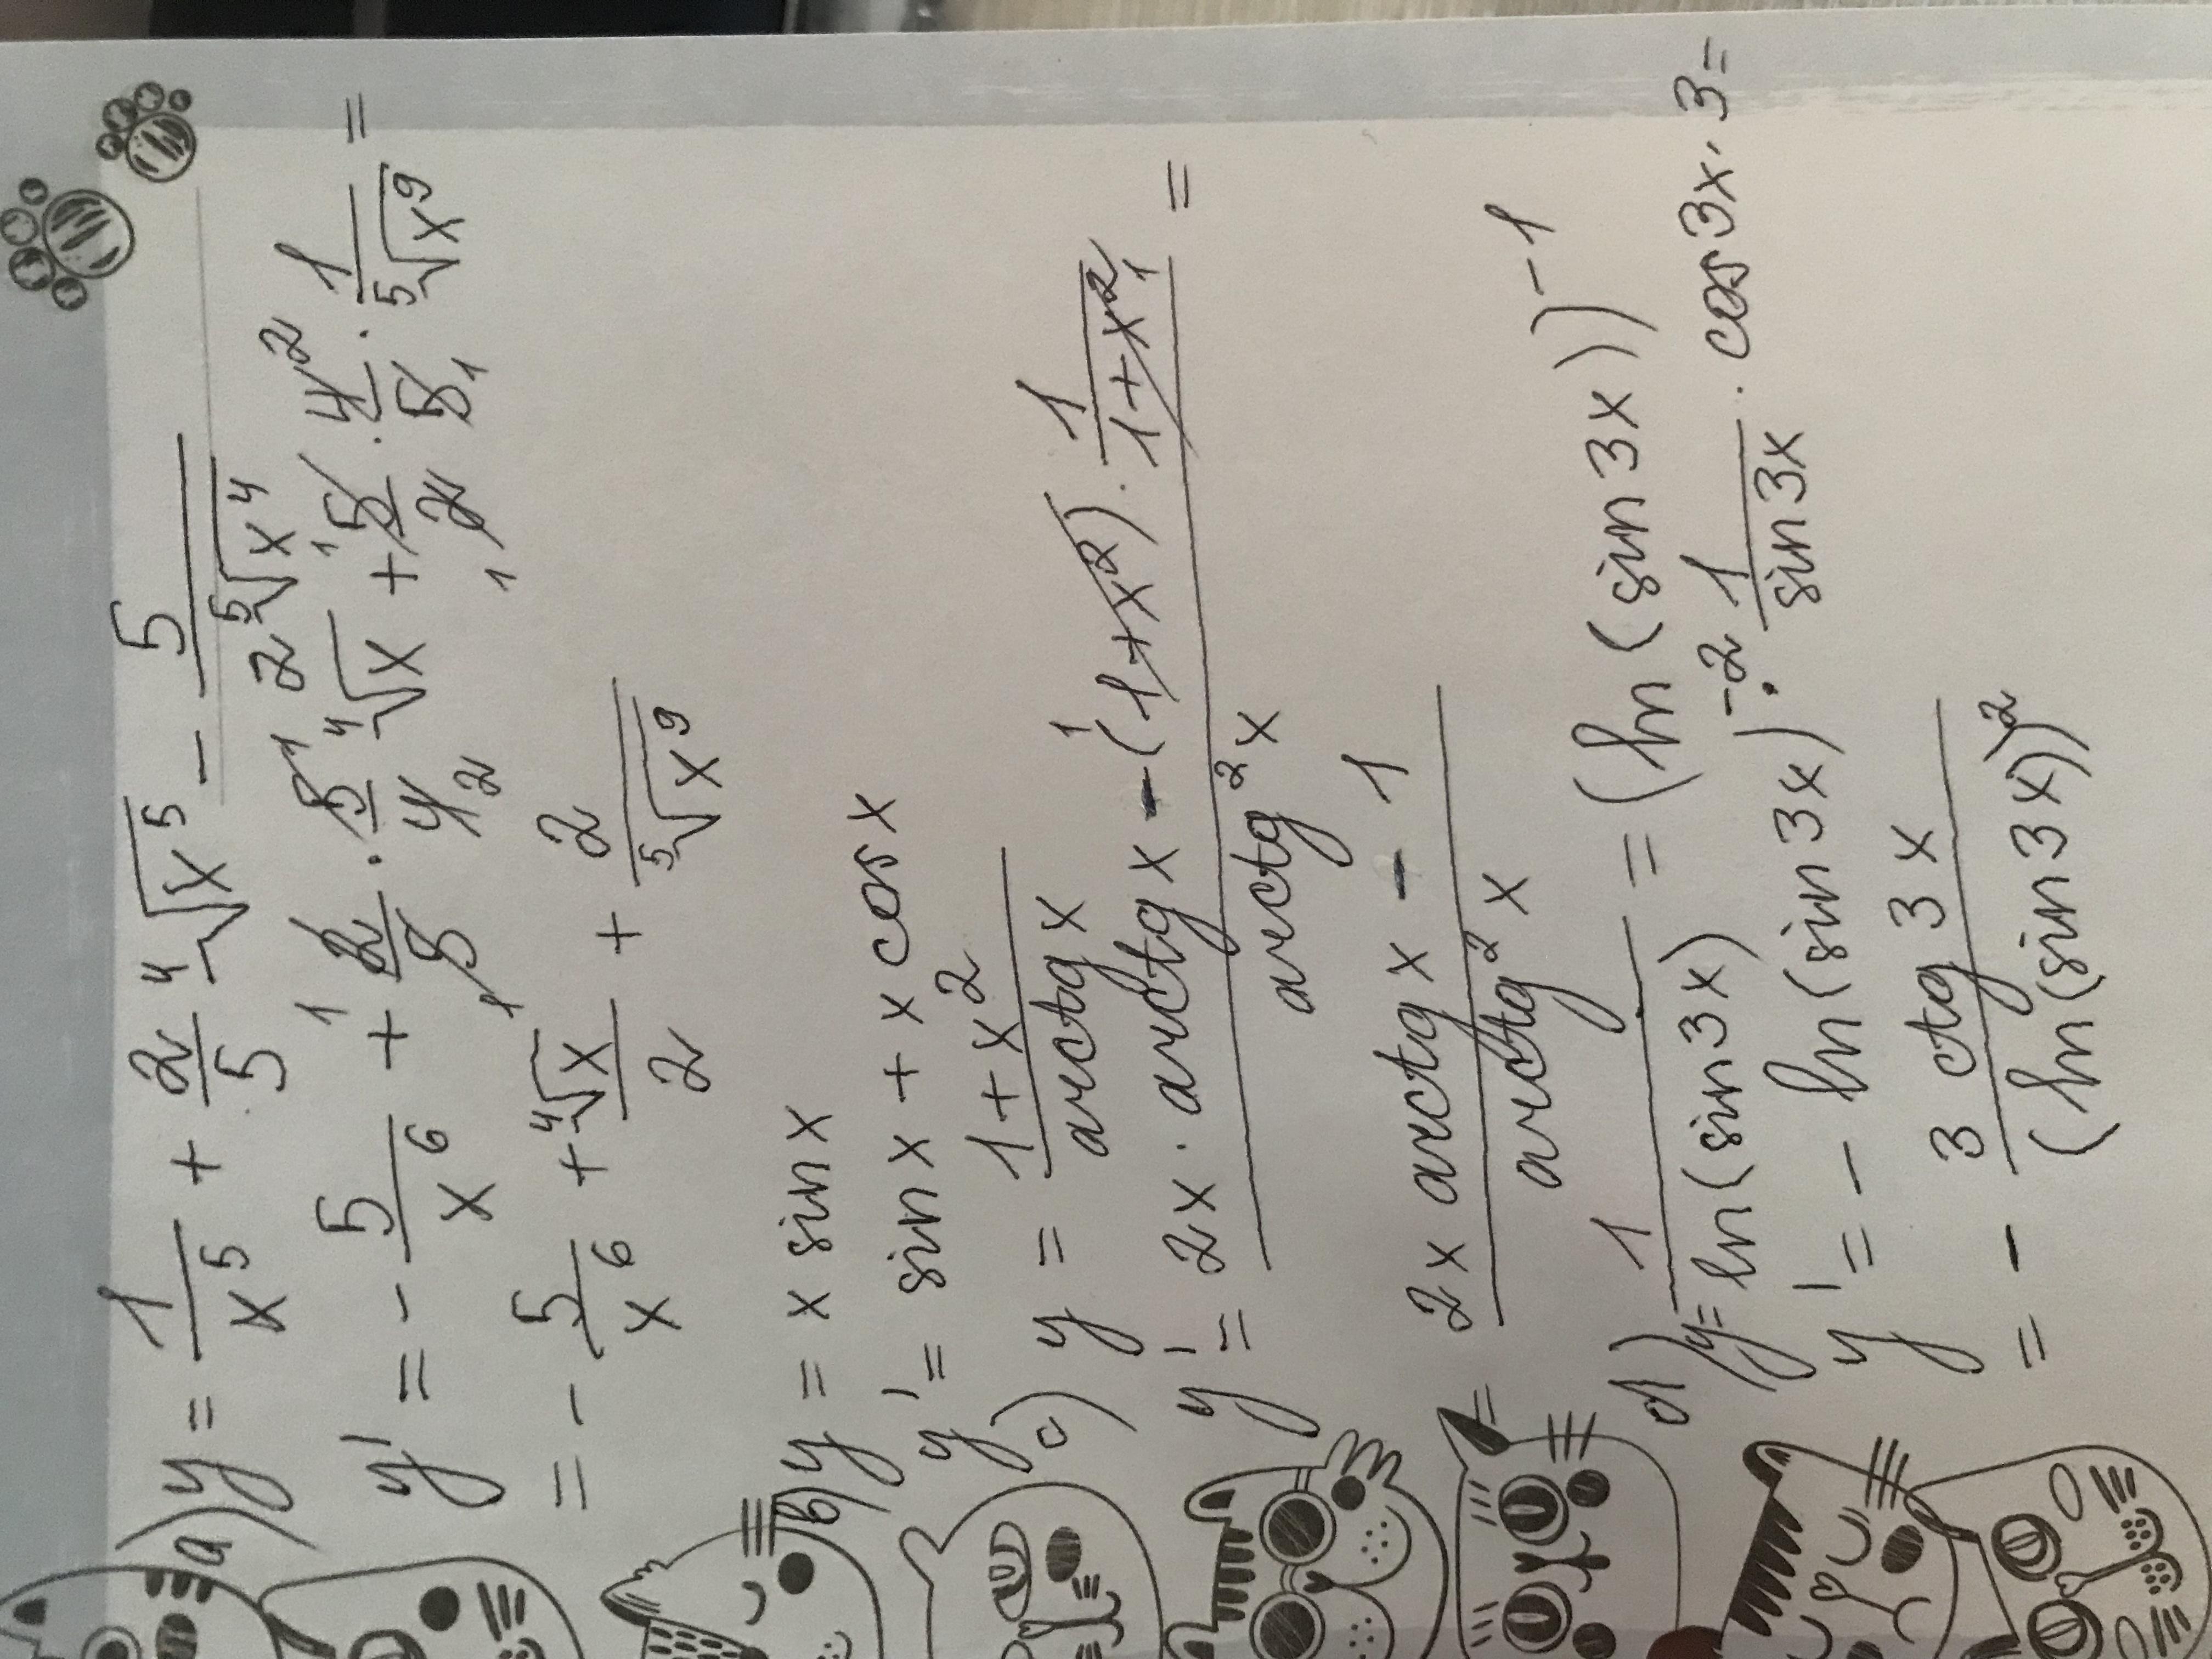 a) y = 1/x⁵ + 2/5 ⁴√x⁵ − 5/(2 ⁵√x⁴)
y' = − 5/x⁶ + 2/5 · 5/4 ⁴√x + 5/2 · 4/5 · 1/⁵√x⁹ =
= − 5/x⁶ + ⁴√x/2 + 2/⁵√x⁹
b) y = x sin x
y' = sin x + x cos x
c) y = (1 + x²)/arctg x
y' = (2x · arctg x − (1 + x²) · 1/(1 + x²))/arctg² x =
= (2x arctg x − 1)/arctg² x
d) y = 1/ln(sin 3x) = (ln(sin 3x))⁻¹
y' = − ln(sin 3x)⁻² · 1/sin 3x · cos 3x · 3 =
= − 3 ctg 3x/(ln(sin 3x))²